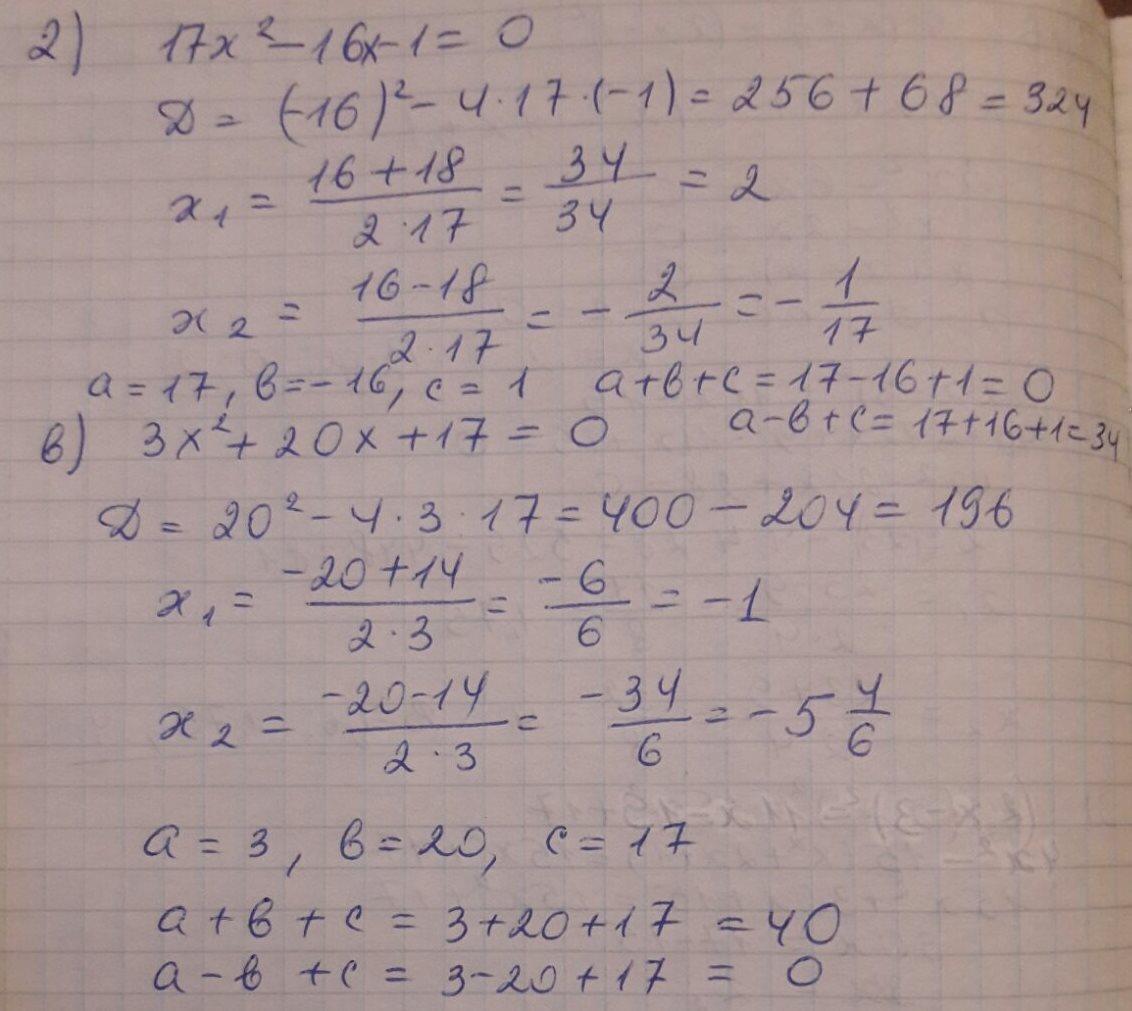 2) 17x² – 16x – 1 = 0
D = (–16)² – 4 · 17 · (–1) = 256 + 68 = 324
x₁ = (16 + 18)/(2 · 17) = 34/34 = 2
x₂ = (16 – 18)/(2 · 17) = – 2/34 = – 1/17
a = 17, в = – 16, c = 1 a + в + c = 17 – 16 + 1 = 0
a – в + c = 17 + 16 + 1 = 34
в) 3x² + 20x + 17 = 0
D = 20² – 4 · 3 · 17 = 400 – 204 = 196
x₁ = (–20 + 14)/(2 · 3) = –6/6 = –1
x₂ = (–20 – 14)/(2 · 3) = –34/6 = –5 4/6
a = 3, в = 20, c = 17
a + в + c = 3 + 20 + 17 = 40
a – в + c = 3 – 20 + 17 = 0